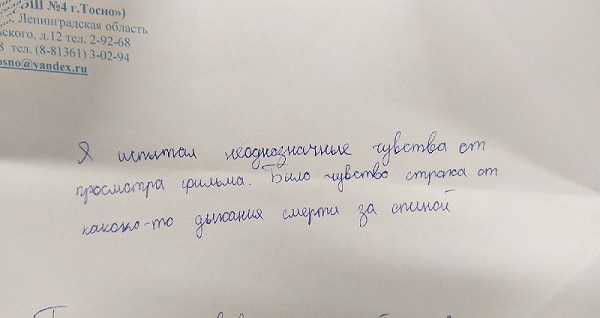 ОШ №4 г.Тосно»)
, Ленинградская область
ьского, д.12 тел. 2-92-68
8 тел. (8-81361) 3-02-94
osno@yandex.ru
Я испытал неоднозначные чувства от
просмотра фильма. Было чувство страха от
какого-то дыхания смерти за спиной